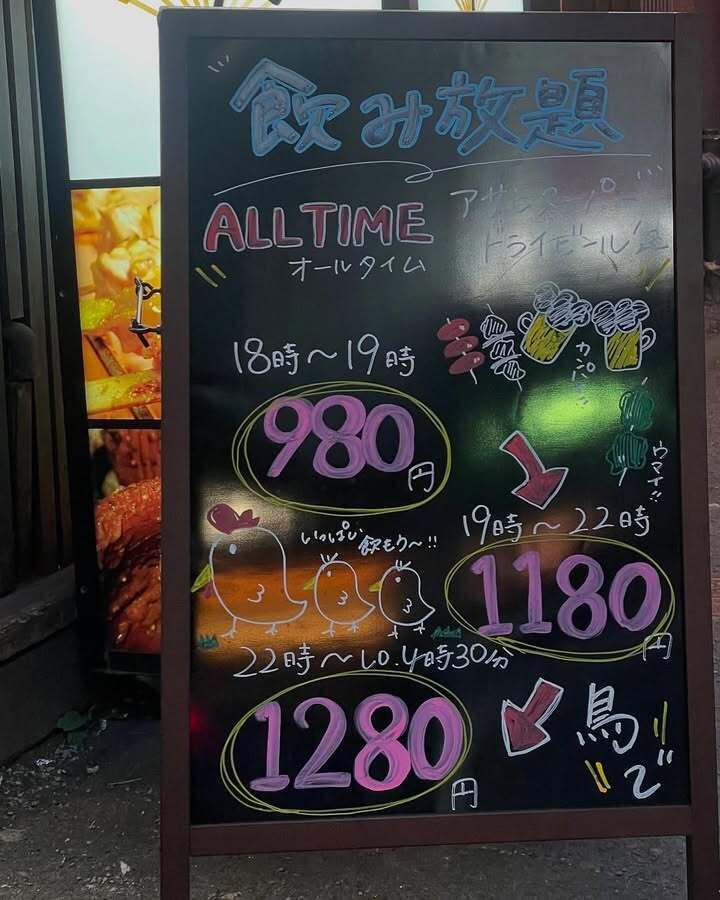 飲み放題
ALLTIME
オールタイム
アサヒスーパー
ドライビール
18時～19時
980円
カンパーイ
ウマイ!!
19時～22時
1180円
いっぱい
飲もう～!!
22時～LO.4時30分
1280円
鳥
で